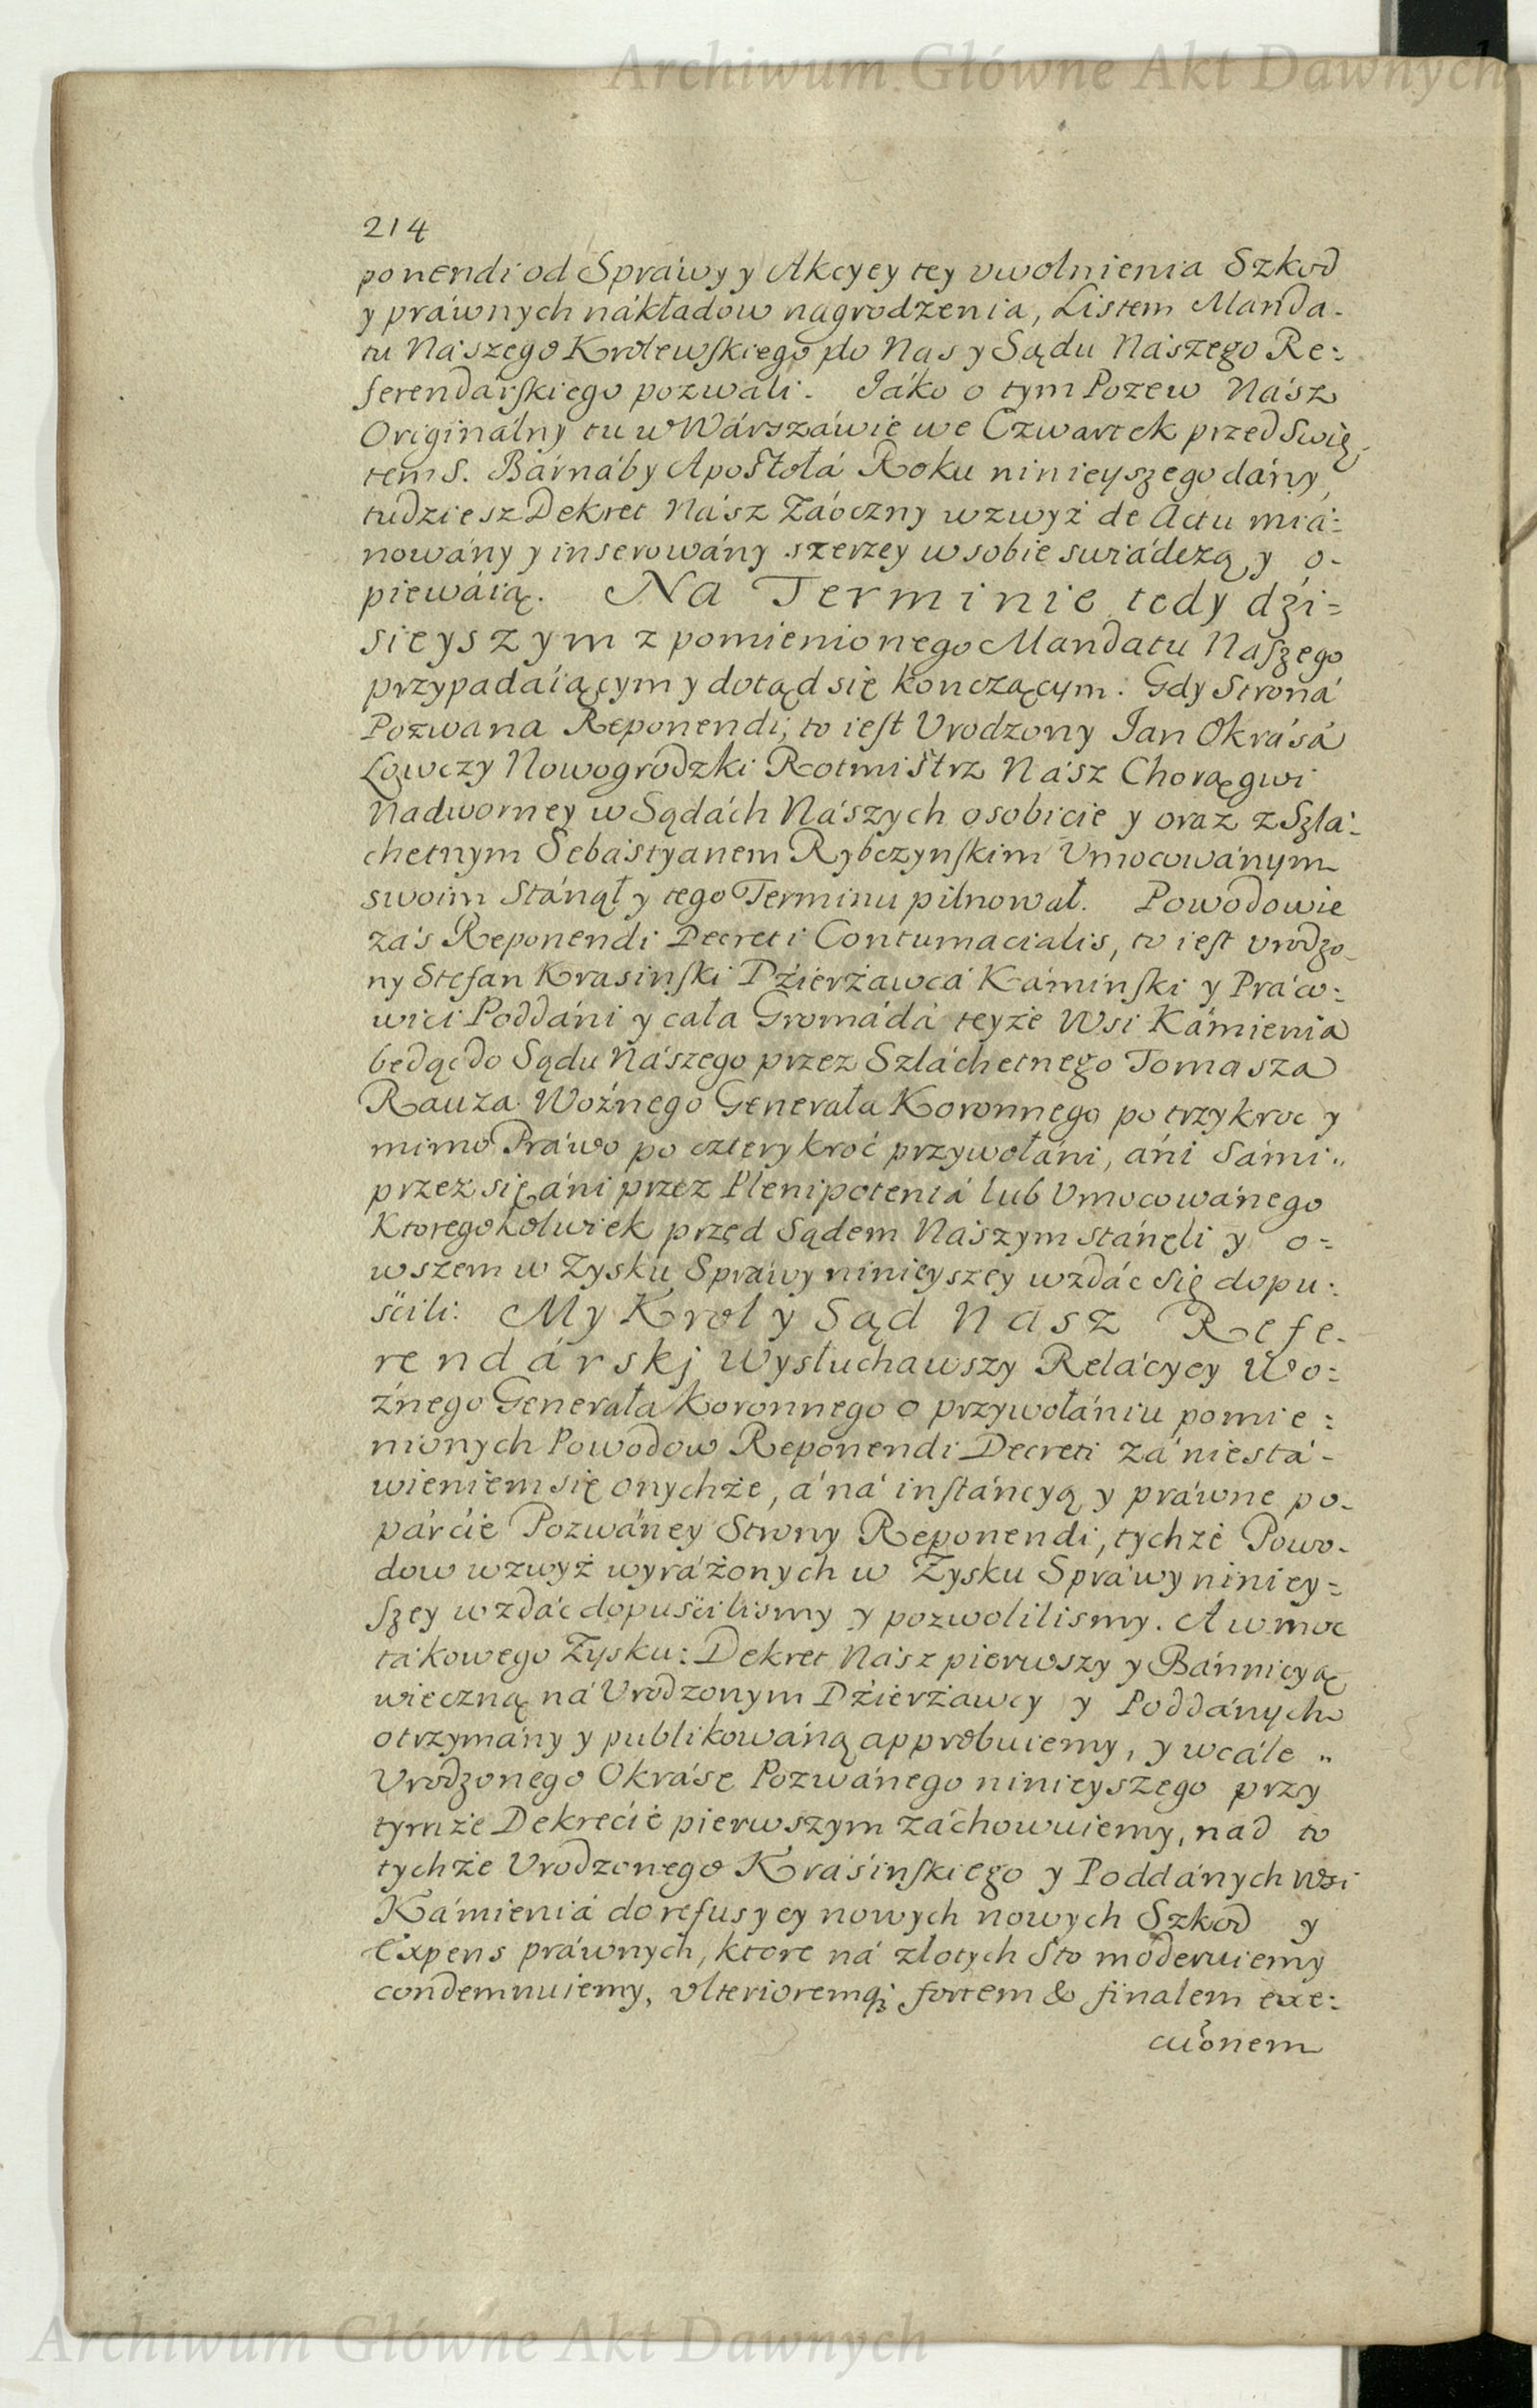 Archiwum Główne Akt Dawnych
214
ponendi od Spráwy y Akcyey tey vwolnienia Szkod
y práwnych nákładow nagrodzenia, Listem Manda-
tu Nászego Krolewskiego do Nas y Sądu Nászego Re:
ferendarskiego pozwali. Jáko o tym Pozew Nász
Originálny tu w Wárszáwie we Czwartek przed Swię-
tem S. Bárnáby Apostołá Roku ninieyszego dány,
tudziesz Dekret Nász Záoczny wzwyż de Actu miá:
nowány y inserowány szerzey w sobie swiádczą y o-
piewáią. Na Terminie tedy dzi=
sieyszym z pomienionego Mandatu Naszego
przypadáiącym y dotąd się kończącym. Gdy Stroná
Pozwana Reponendi, to iest Vrodzony Jan Okrásá
Łowczy Nowogrodzki Rotmistrz Nász Chorągwi
Nadworney w Sądách Nászych osobicie y oraz z Szlá:
chetnym Sebástyanem Rybczynskim Vmocowánym
swoim Stánął y tego Terminu pilnował. Powodowie
zás Reponendi Decreti Contumacialis, to iest vrodzo-
ny Stefan Krasinski Dzierżawcá Káminski y Prácо:
wici Poddáni y cała Gromádá teyże Wsi Kámienia
będąc do Sądu Nászego przez Szláchetnego Tomasza
Rauza Woźnego Generała Koronnego po trzykroc y
mimo Práwo po czterykroć przywołáni, áni Sámi
przez się áni przez Plenipotentá lub Vmocowánego
Ktoregokolwiek przed Sądem Nászym stánęli y o=
wszem w Zysku Spráwy ninieyszey wzdác się dopu:
ścili: My Krol y Sąd Nasz Refe-
rendárskj Wysłuchawszy Relácyey Wo:
źnego Generała Koronnego o przywołániu pomie:
nionych Powodow Reponendi Decreti zá niestá-
wieniem się onychże, á ná instáncyą y práwne po-
párcie Pozwáney Strony Reponendi, tychże Powo-
dow wzwyż wyráżonych w Zysku Spráwy niniey=
szey wzdác dopuścilismy y pozwolilismy. A w moc
tákowego Zysku: Dekret Nász pierwszy y Bánnicyą
wieczną ná Vrodzonym Dzierżawcy y Poddánych
otrzymány y publikowáną approbuiemy, y wcále
Vrodzonego Okrásę Pozwánego ninieyszego przy
tymże Dekrećie pierwszym záchowuiemy, nad to
tychże Vrodzonego Krasinskiego y Poddánych wsi
Kámieniá do refusyey nowych nowych Szkod y
Expens práwnych, ktore ná złotych Sto moderuiemy
condemnuiemy, vlterioremq; fortem & finalem exe:
cuonem
Archiwum Główne Akt Dawnych